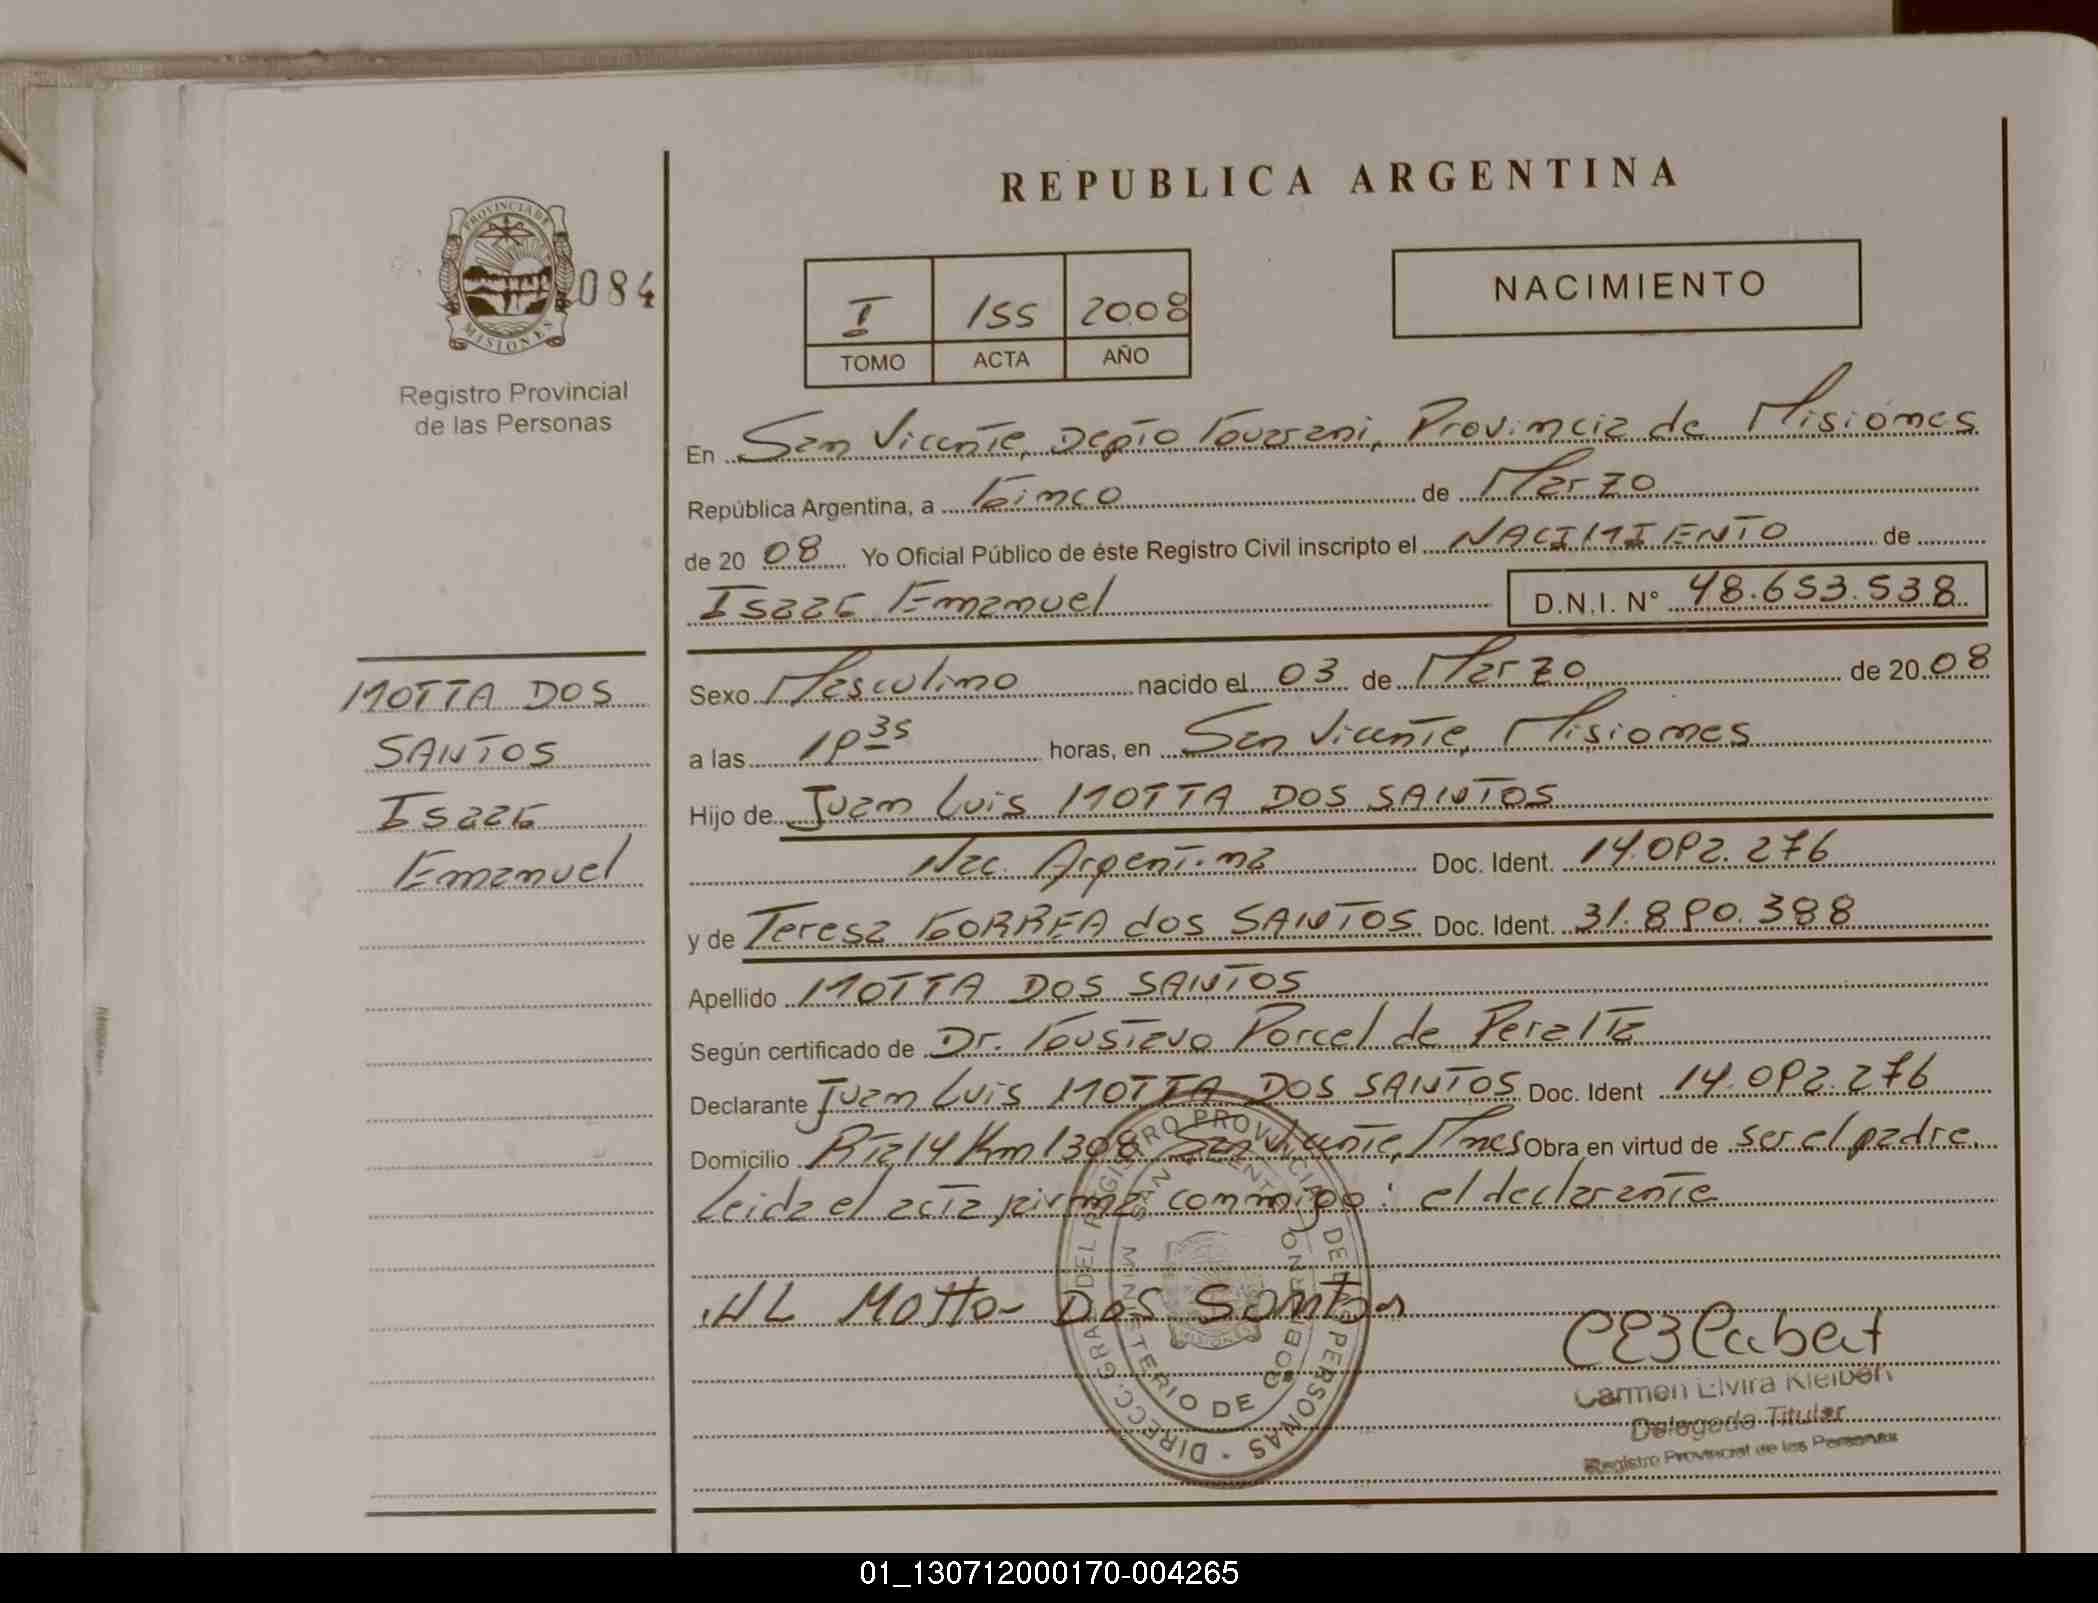 REPUBLICA ARGENTINA
PROVINCIA DE
MISIONES
084
Registro Provincial
de las Personas
I 155 2008
TOMO ACTA AÑO
NACIMIENTO
En San Vicente, Depto Guarani, Provincia de Misiones
República Argentina, a Cinco de Marzo
de 20 08 Yo Oficial Público de éste Registro Civil inscripto el NACIMIENTO de
Isaac Emanuel D.N.I. N° 48.653.538
MOTTA DOS
SANTOS
Isaac
Emanuel
Sexo Masculino nacido el 03 de Marzo de 20 08
a las 19 35 horas, en San Vicente, Misiones
Hijo de Juan Luis MOTTA DOS SANTOS
Nac. Argentina Doc. Ident. 14.092.276
y de Teresa CORREA dos SANTOS Doc. Ident. 31.890.388
Apellido MOTTA DOS SANTOS
Según certificado de Dr. Gustavo Porcel de Peralta
Declarante Juan Luis MOTTA DOS SANTOS Doc. Ident 14.092.276
Domicilio Rta 14 Km 1308 San Vicente, Mnes Obra en virtud de ser el padre
Leida el acta firma conmigo: el declarante
Motta Dos Santos
DIRECC. GRAL. DEL REGISTRO PROVINCIAL DE LAS PERSONAS
MINISTERIO DE GOBIERNO
SAN VICENTE
Carmen Elvira Kleiben
Delegada Titular
Registro Provincial de las Personas
01_130712000170-004265